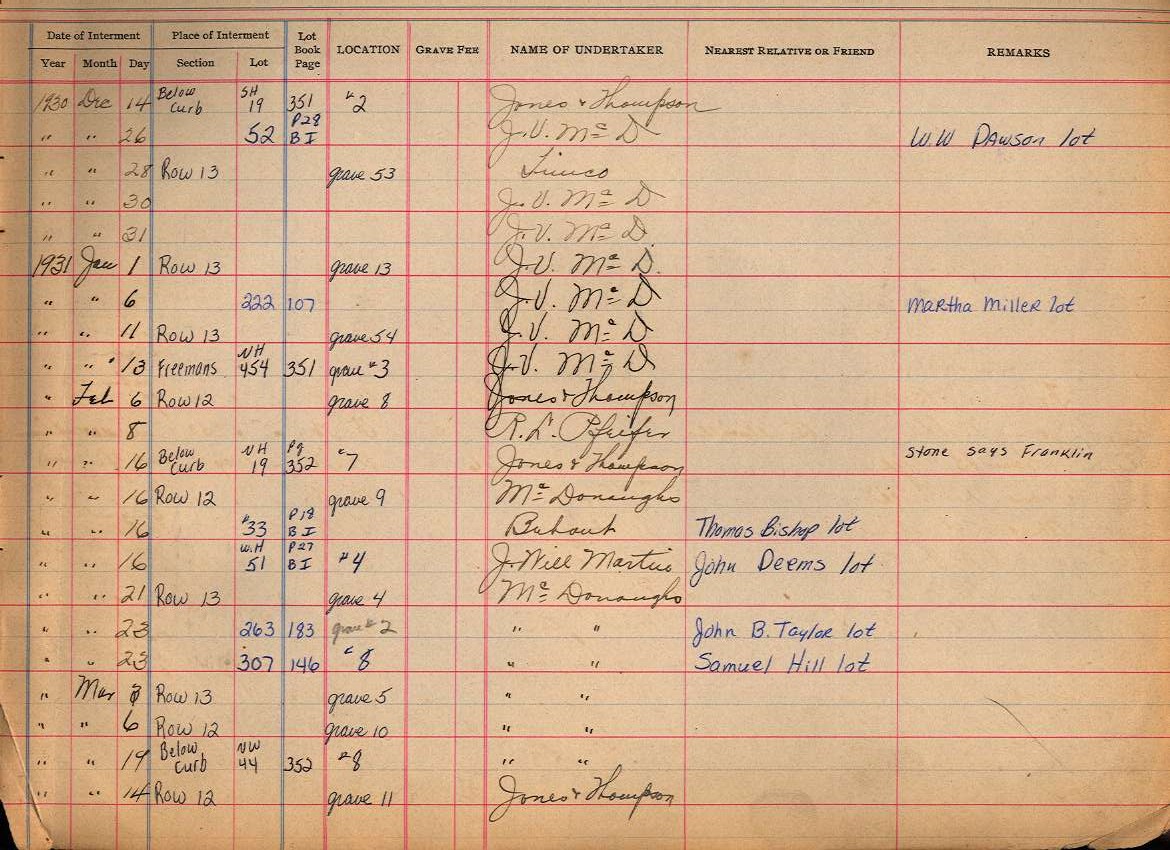 Date of Interment Place of Interment Lot Book Page LOCATION GRAVE FEE NAME OF UNDERTAKER NEAREST RELATIVE OR FRIEND REMARKS
Year Month Day Section Lot
1930 Dec 14 Below Curb SH 19 351 #2 Jones & Thompson
" " 26 52 P28 B I J. V. Mc D W.W Dawson lot
" " 28 Row 13 grave 53
" " 30 J. V. Mc D
" " 31 J. V. Mc D.
1931 Jan 1 Row 13 grave 13 J. V. Mc D.
" " 6 222 107 J. V. Mc D Martha Miller lot
" " 11 Row 13 grave 54 J. V. Mc D
" " 13 Freemans NH 454 351 grave #3 J. V. Mc D
" Feb 6 Row 12 grave 8 Jones & Thompson
" " 8 R. L. Pfeifer
" " 16 Below Curb NH 19 Pg 352 "7 Jones & Thompson stone says Franklin
" " 16 Row 12 grave 9 Mc Donaugho
" " 16 #33 P18 B I Thomas Bishop lot
" " 16 W.H 51 P27 B I #4 J. Will Martin John Deems lot
" " 21 Row 13 grave 4 Mc Donaugho
" " 23 263 183 grave # 2 " " John B. Taylor lot
" " 23 307 146 "8 " " Samuel Hill lot
" Mar Row 13 grave 5 " "
" " 6 Row 12 grave 10 " "
" " 19 Below Curb NW 44 352 #8 " "
" " 14 Row 12 grave 11 Jones & Thompson